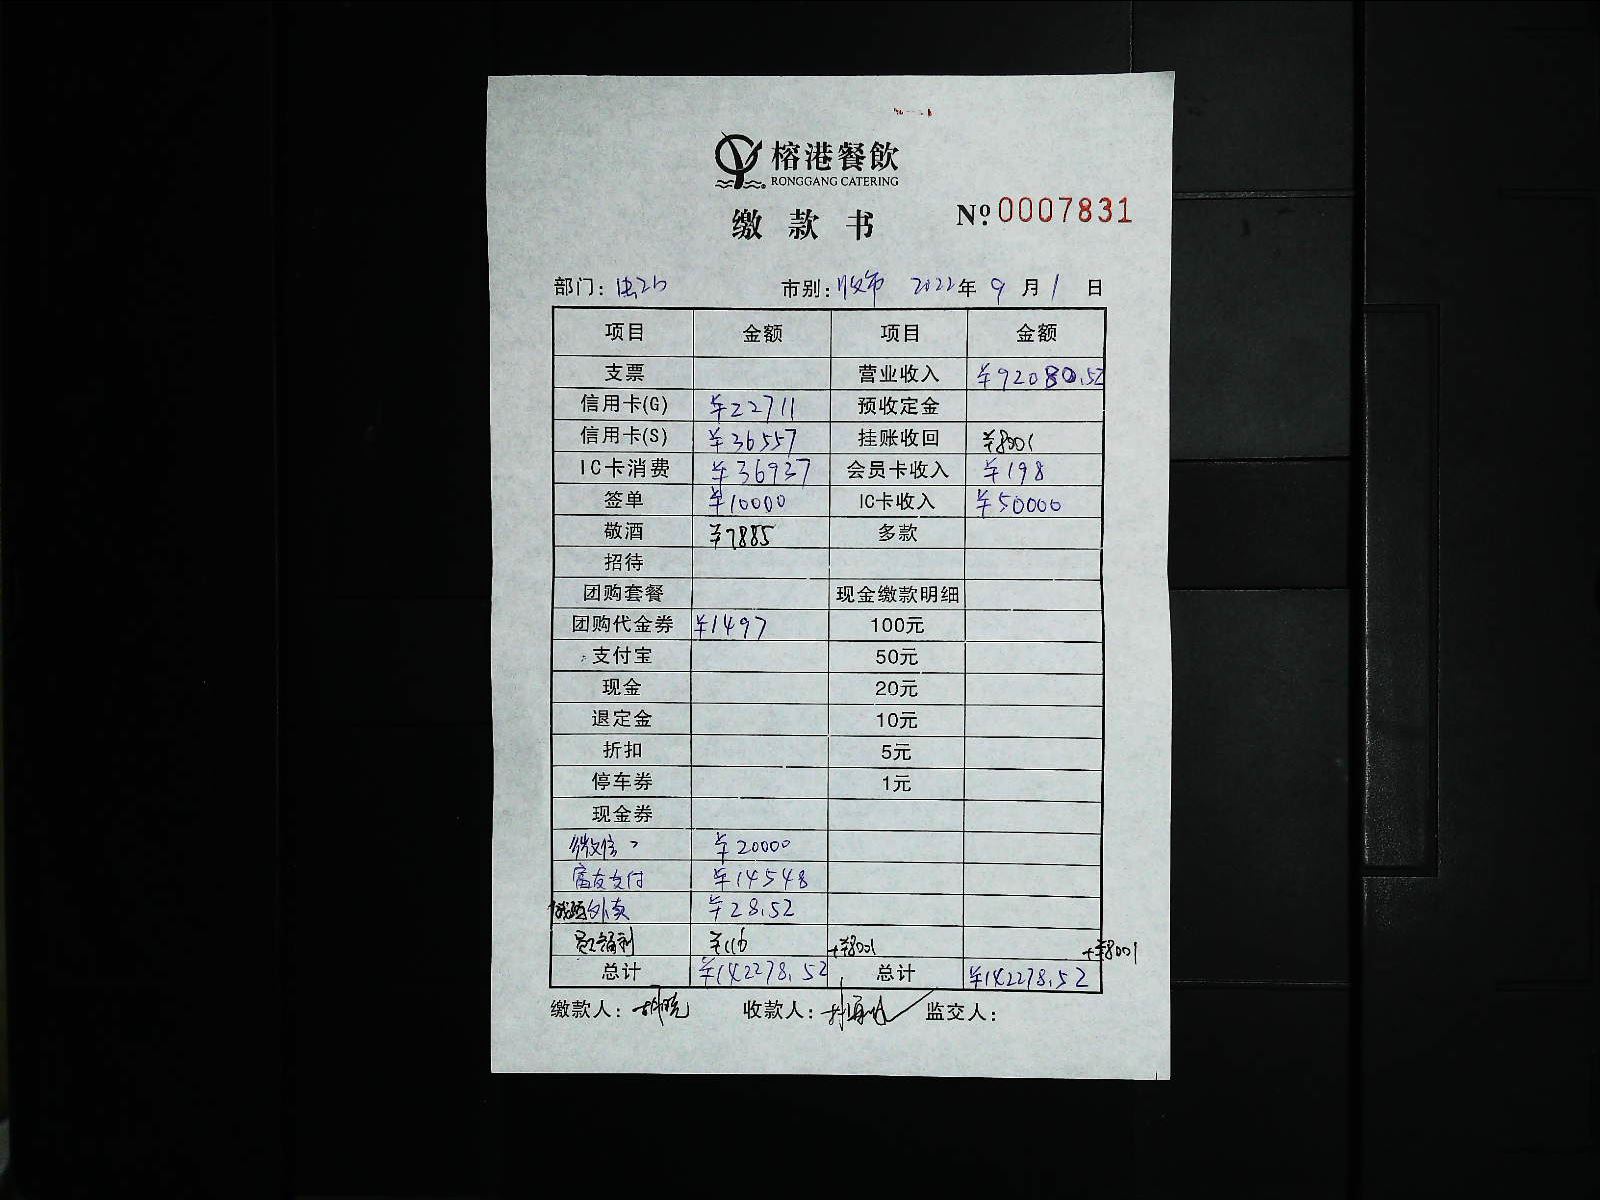 榕港餐飲
RONGGANG CATERING
缴款书 Nº 0007831
部门： 市别： 2022年 9月 1日
项目 金额 项目 金额
支票 营业收入 ¥92080.52
信用卡(G) ¥22711 预收定金
信用卡(S) ¥36557 挂账收回 ¥8001
IC卡消费 ¥36937 会员卡收入 ¥198
签单 ¥10000 IC卡收入 ¥50000
敬酒 ¥7885 多款
招待
团购套餐 现金缴款明细
团购代金券 ¥1497 100元
支付宝 50元
现金 20元
退定金 10元
折扣 5元
停车券 1元
现金券
微信 ¥20000
富友支付 ¥14548
外卖 ¥28.52
员工福利 ¥116 +¥8001 +¥8001
总计 ¥142278.52 总计 ¥142278.52
缴款人： 收款人： 监交人：